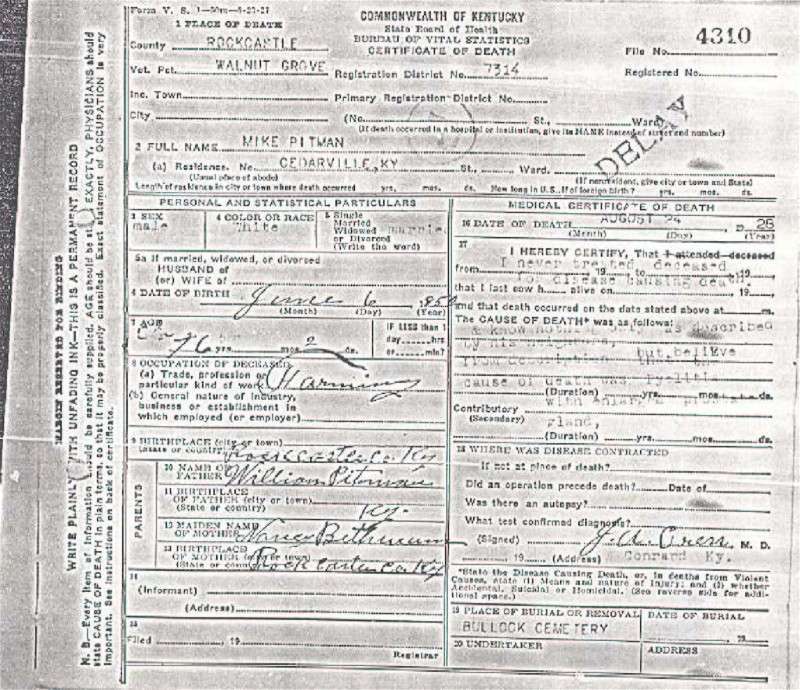 Form V. S.
COMMONWEALTH OF KENTUCKY
State Board of Health
BUREAU OF VITAL STATISTICS
CERTIFICATE OF DEATH
File No. 4310
Registered No.
1 PLACE OF DEATH
County ROCKCASTLE
Vot. Pct. WALNUT GROVE
Registration District No. 7314
Inc. Town
Primary Registration District No.
City
(No. St., Ward)
(If death occurred in a hospital or institution, give its NAME instead of street and number)
DELAY
2 FULL NAME MIKE PITMAN
(a) Residence. No. CEDARVILLE, KY St., Ward.
(Usual place of abode) (If nonresident, give city or town and State)
Length of residence in city or town where death occurred yrs. mos. ds. How long in U.S., if of foreign birth? yrs. mos. ds.
PERSONAL AND STATISTICAL PARTICULARS
3 SEX
male
4 COLOR OR RACE
White
5 Single
Married
Widowed
or Divorced
(Write the word)
married
5a If married, widowed, or divorced
HUSBAND of
(or) WIFE of
DATE OF BIRTH June 6
(Month) (Day) (Year)
7 AGE
76 yrs. mos. 2 ds.
IF LESS than 1
day hrs
or min?
8 OCCUPATION OF DECEASED
(a) Trade, profession or
particular kind of work Farming
(b) General nature of industry,
business or establishment in
which employed (or employer)
9 BIRTHPLACE (city or town)
(State or country) Rockcastle Co. Ky
PARENTS
10 NAME OF
FATHER William Pitman
11 BIRTHPLACE
OF FATHER (city or town)
(State or country) Ky.
12 MAIDEN NAME
OF MOTHER Nancy
13 BIRTHPLACE
OF MOTHER (city or town)
(State or country) Rock Castle Co Ky
(Informant)
(Address)
Filed , 19
Registrar
MEDICAL CERTIFICATE OF DEATH
16 DATE OF DEATH AUGUST 24
(Month) (Day) (Year)
17
I HEREBY CERTIFY, That I attended deceased
I never treated deceased
from 19 to 19
for disease causing death.
that I last saw h alive on 19
and that death occurred on the date stated above at m.
The CAUSE OF DEATH* was as follows:
described
by his neighbors, but believe
from
cause of death was
(Duration) yrs. mos. ds.
with
Contributory
(Secondary) gland,
(Duration) yrs. mos. ds.
18 WHERE WAS DISEASE CONTRACTED
if not at place of death?
Did an operation precede death? Date of
Was there an autopsy?
What test confirmed diagnosis?
(Signed) M. D.
, 19 (Address) Conrard Ky.
*State the Disease Causing Death, or, in deaths from Violent
Causes, state (1) Means and nature of Injury; and (2) whether
Accidental, Suicidal or Homicidal. (See reverse side for addi-
tional space.)
19 PLACE OF BURIAL OR REMOVAL
BULLOCK CEMETERY
DATE OF BURIAL
, 19
20 UNDERTAKER
ADDRESS
MARGIN RESERVED FOR BINDING
WRITE PLAINLY WITH UNFADING INK—THIS IS A PERMANENT RECORD
N. B.—Every item of information should be carefully supplied. AGE should be stated EXACTLY. PHYSICIANS should
state CAUSE OF DEATH in plain terms, so that it may be properly classified. Exact statement of OCCUPATION is very
important. See instructions on back of certificate.